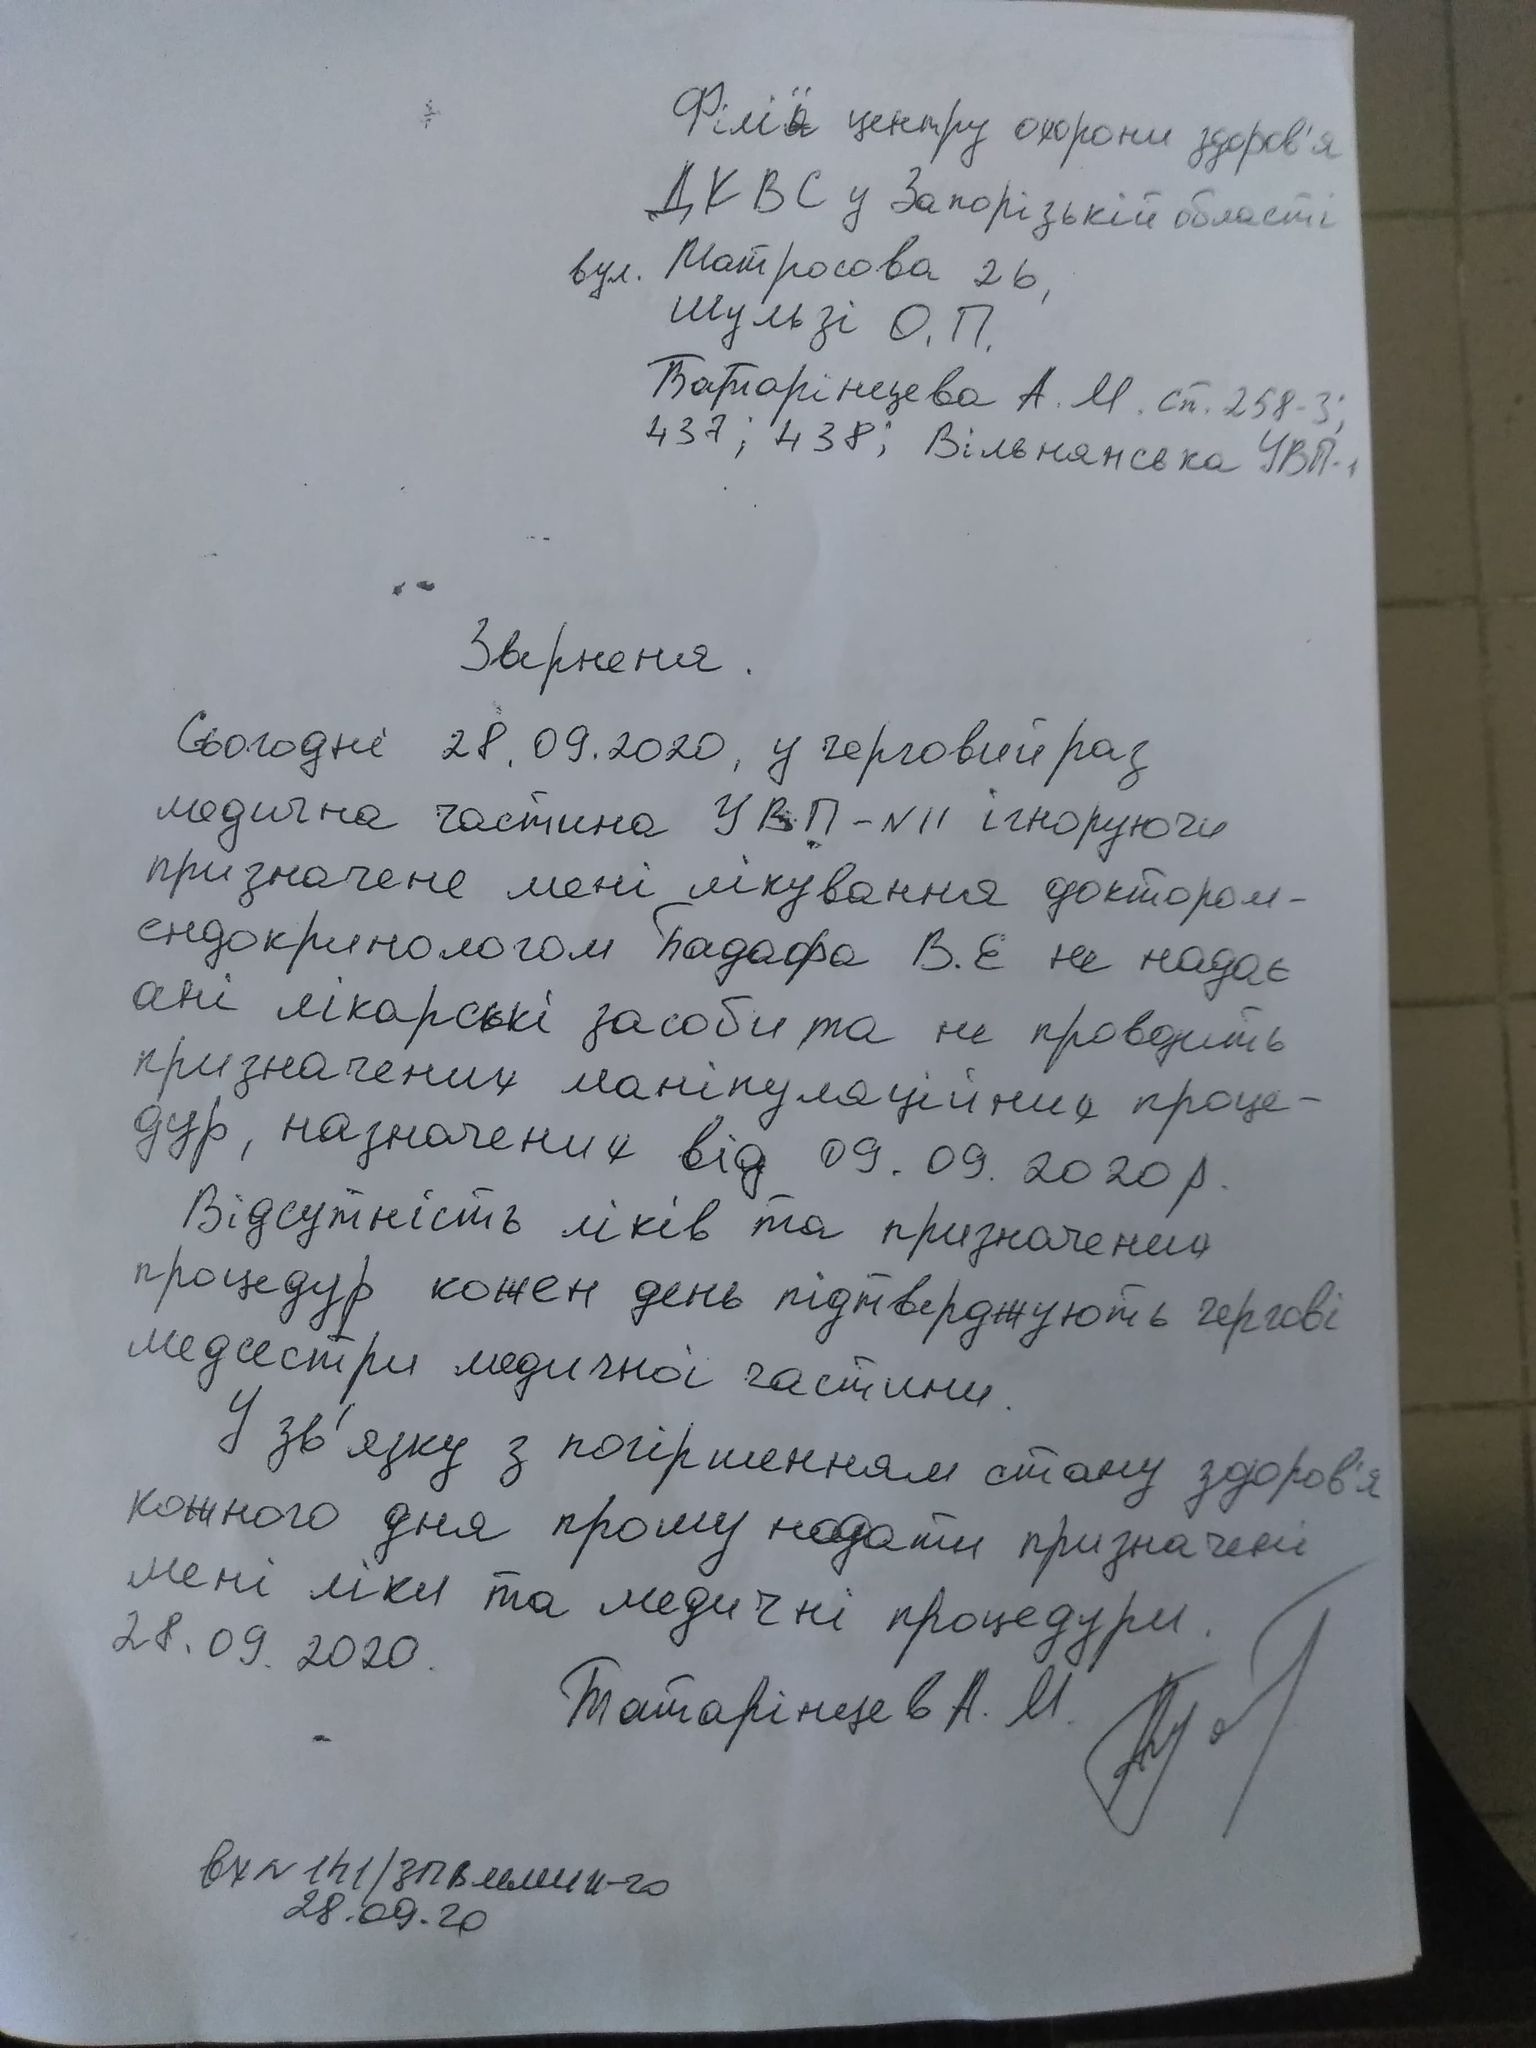 Філії центру охорони здоров'я
ДКВС у Запорізькій області
вул. Матросова 26,
Шульзі О.П.
Татарінцева А.М. ст. 258-3;
437; 438; Вільнянська УВП-1
Звернення.
Сьогодні 28.09.2020, у черговий раз
медична частина УВП-№11 ігноруючи
призначене мені лікування доктором-
ендокринологом В.Є не надає
ані лікарські засоби та не проводить
призначених маніпуляційних проце-
дур, назначених від 09.09.2020р.
Відсутність ліків та призначених
процедур кожен день підтверджують чергові
медсестри медичної частини.
У зв'язку з погіршенням стану здоров'я
кожного дня прошу надати призначені
мені ліки та медичні процедури.
28.09.2020.
Татарінцев А.М.
28.09.20